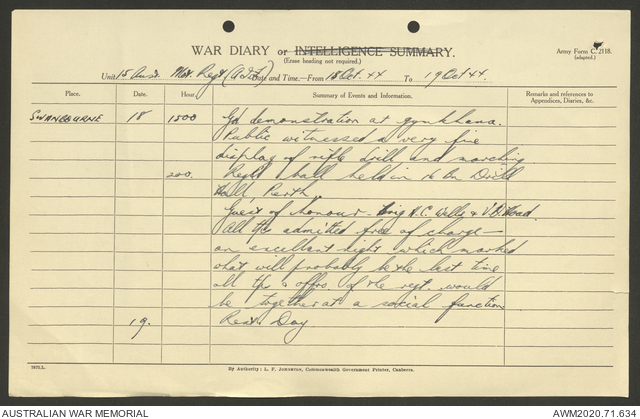 WAR DIARY or INTELLIGENCE SUMMARY.
(Erase heading not required.)
Army Form C. 2118.
(adapted.)
Unit 15 Aust. Mot. Regt (AIF) Date and Time.—From 18 Oct. 44 To 19 Oct 44.
Place.
Date.
Hour.
Summary of Events and Information.
Remarks and references to
Appendices, Diaries, &c.
SWANBOURNE 18 1500 Gd demonstration at gymkhana.
Public witnessed a very fine
display of rifle drill and marching.
200. Regt ball held in 16 Bn Drill
Hall Perth.
Guest of honour - Brig H.C. Wells & V.B. Road.
All tps admitted free of charge -
an excellent night which marked
what will probably be the last time
all tps & offrs. of the regt. would
be together at a social function
19. Rest Day
7875.L.
By Authority: L. F. JOHNSTON, Commonwealth Government Printer, Canberra.
AUSTRALIAN WAR MEMORIAL
AWM2020.71.634